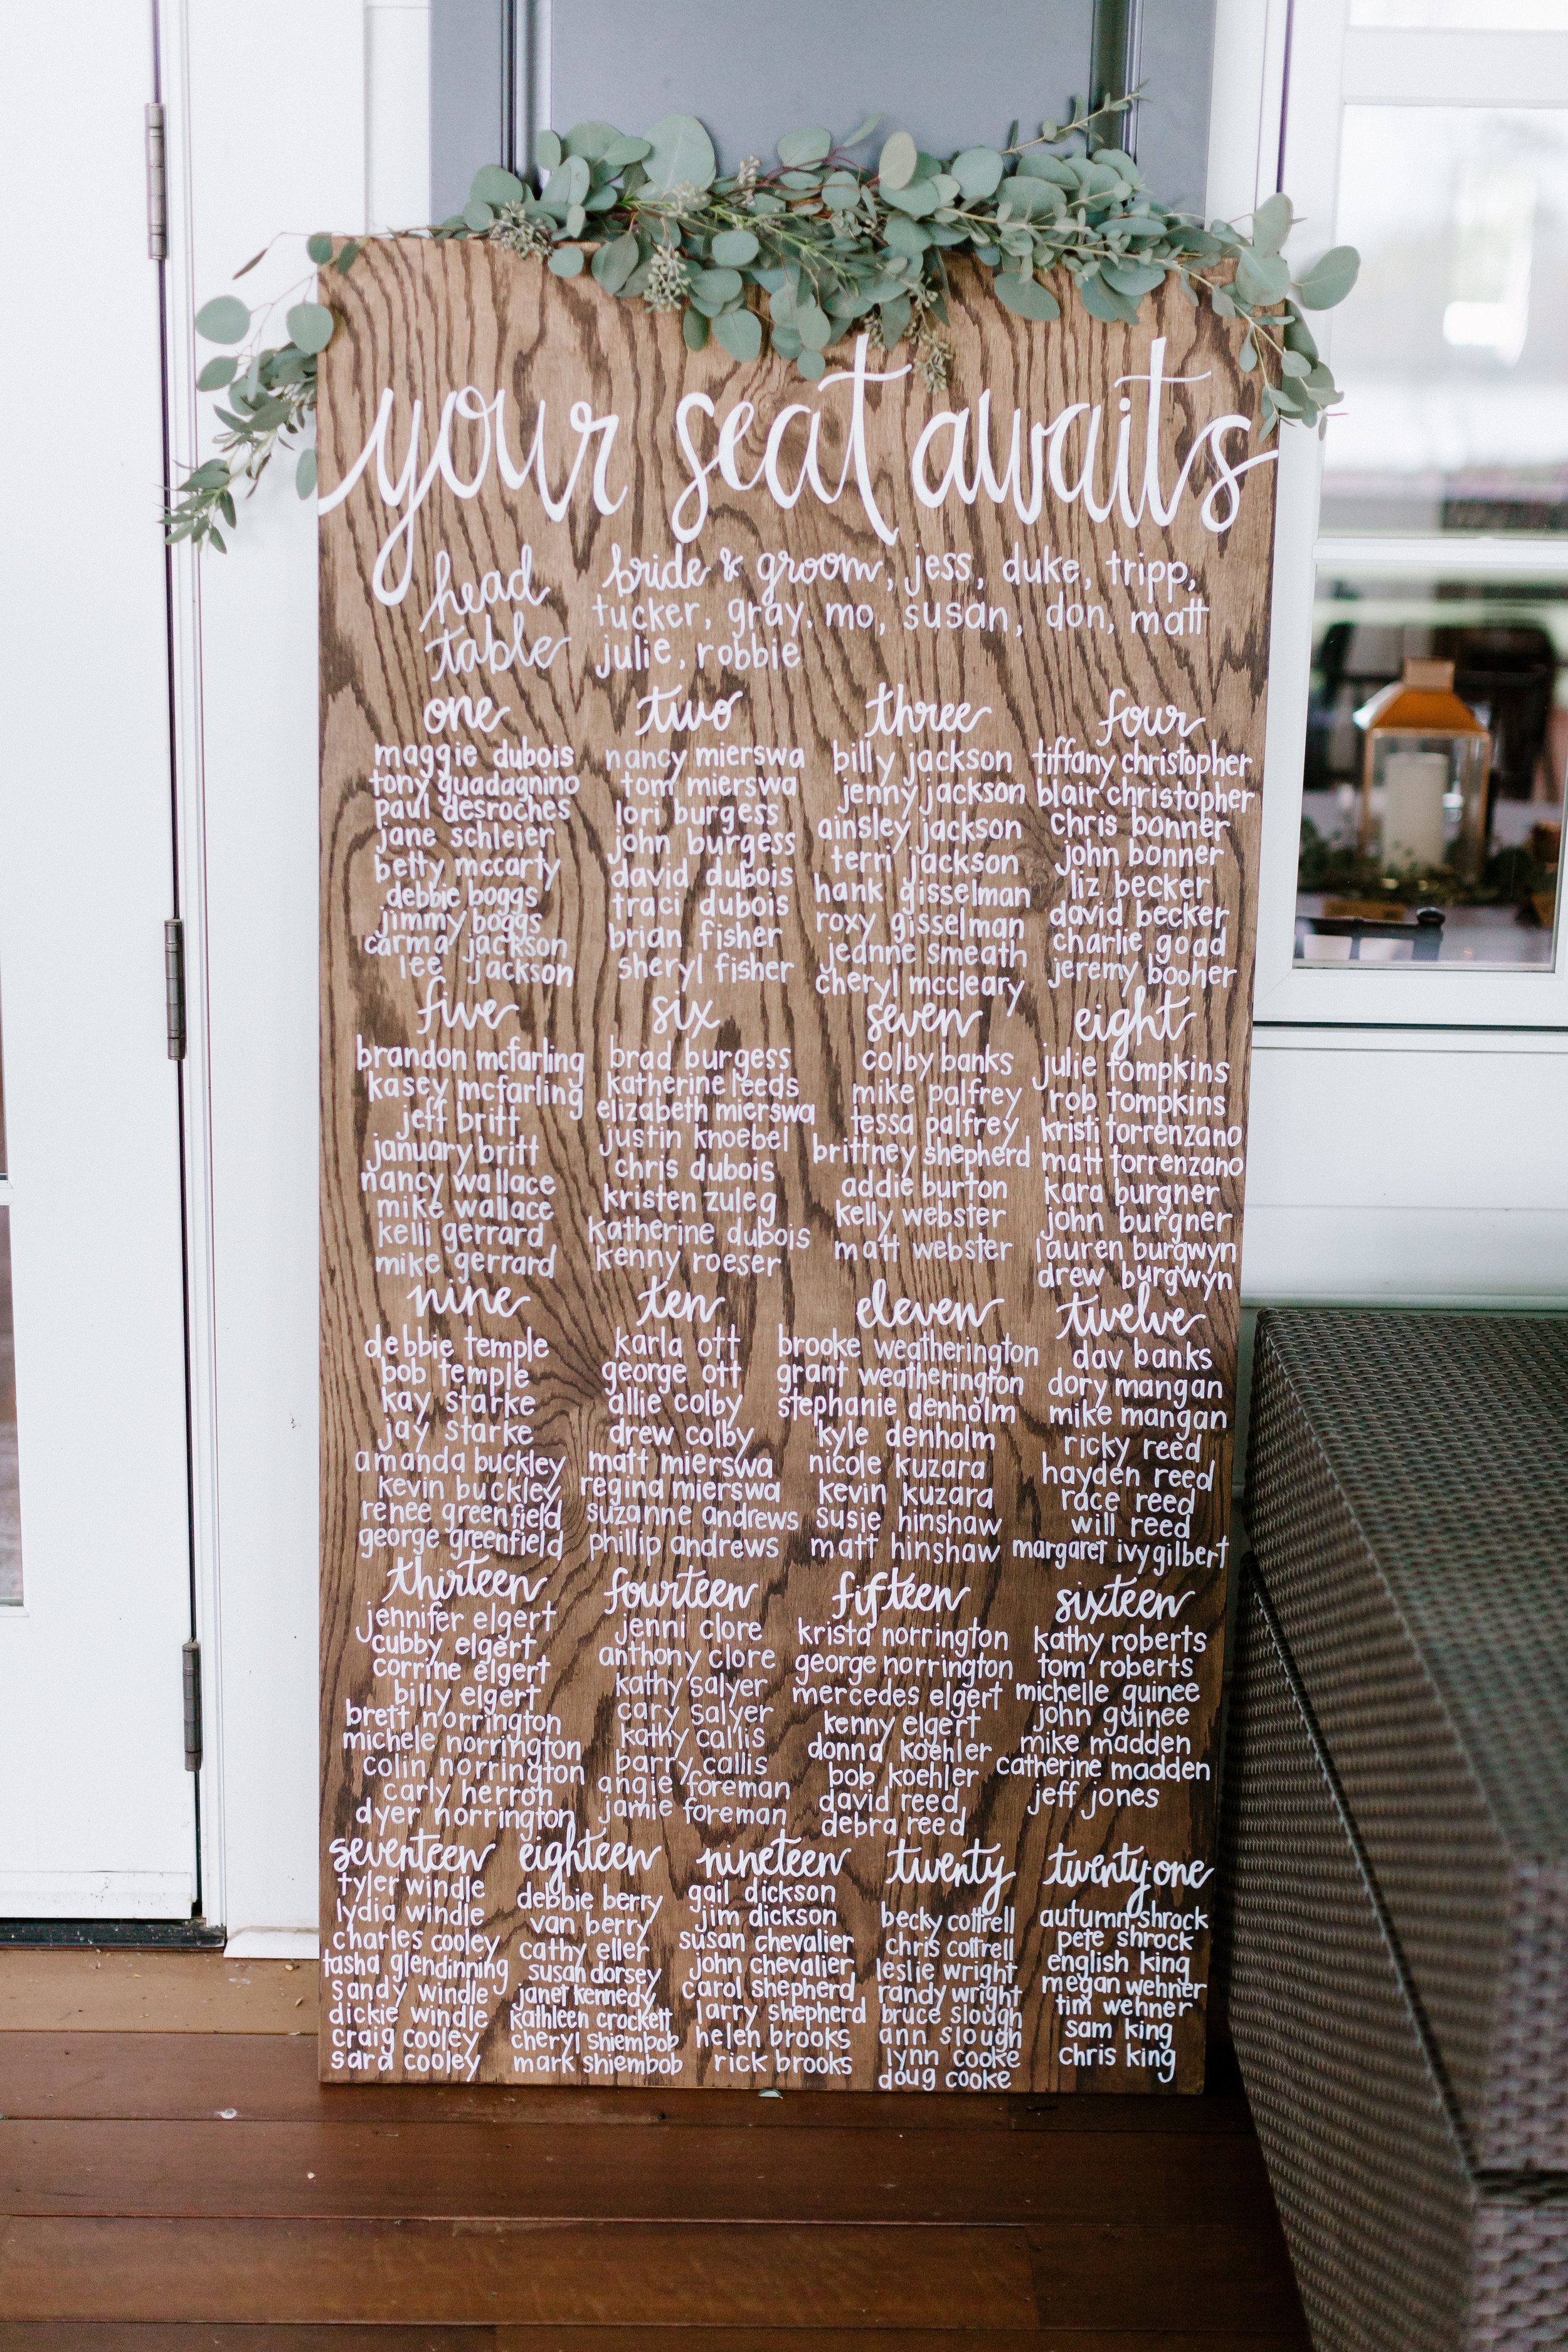 your seat awaits
head table
bride & groom, jess, duke, tripp,
tucker, gray, mo, susan, don, matt
julie, robbie
one
maggie dubois
tony guadagnino
paul desroches
jane schleier
betty mccarty
debbie boggs
jimmy boggs
carma jackson
lee jackson
two
nancy mierswa
tom mierswa
lori burgess
john burgess
david dubois
traci dubois
brian fisher
sheryl fisher
three
billy jackson
jenny jackson
ainsley jackson
terri jackson
hank gisselman
roxy gisselman
jeanne smeath
cheryl mccleary
four
tiffany christopher
blair christopher
chris bonner
john bonner
liz becker
david becker
charlie goad
jeremy booher
five
brandon mcfarling
kasey mcfarling
jeff britt
january britt
nancy wallace
mike wallace
kelli gerrard
mike gerrard
six
brad burgess
katherine leeds
elizabeth mierswa
justin knoebel
chris dubois
kristen zuleg
katherine dubois
kenny roeser
seven
colby banks
mike palfrey
tessa palfrey
brittney shepherd
addie burton
kelly webster
matt webster
eight
julie tompkins
rob tompkins
kristi torrenzano
matt torrenzano
kara burgner
john burgner
lauren burgwyn
drew burgwyn
nine
debbie temple
bob temple
kay starke
jay starke
amanda buckley
kevin buckley
renee greenfield
george greenfield
ten
karla ott
george ott
allie colby
drew colby
matt mierswa
regina mierswa
suzanne andrews
phillip andrews
eleven
brooke weatherington
grant weatherington
stephanie denholm
kyle denholm
nicole kuzara
kevin kuzara
susie hinshaw
matt hinshaw
twelve
dav banks
dory mangan
mike mangan
ricky reed
hayden reed
race reed
will reed
margaret ivy gilbert
thirteen
jennifer elgert
cubby elgert
corrine elgert
billy elgert
brett norrington
michele norrington
colin norrington
carly herron
dyer norrington
fourteen
jenni clore
anthony clore
kathy salyer
cary salyer
kathy callis
barry callis
angie foreman
jamie foreman
fifteen
krista norrington
george norrington
mercedes elgert
kenny elgert
donna koehler
bob koehler
david reed
debra reed
sixteen
kathy roberts
tom roberts
michelle guinee
john guinee
mike madden
catherine madden
jeff jones
seventeen
tyler windle
lydia windle
charles cooley
tasha glendinning
sandy windle
dickie windle
craig cooley
sara cooley
eighteen
debbie berry
van berry
cathy eller
susan dorsey
janet kennedy
kathleen crockett
cheryl shiembob
mark shiembob
nineteen
gail dickson
jim dickson
susan chevalier
john chevalier
carol shepherd
larry shepherd
helen brooks
rick brooks
twenty
becky cottrell
chris cottrell
leslie wright
randy wright
bruce slough
ann slough
lynn cooke
doug cooke
twenty one
autumn shrock
pete shrock
english king
megan wehner
tim wehner
sam king
chris king